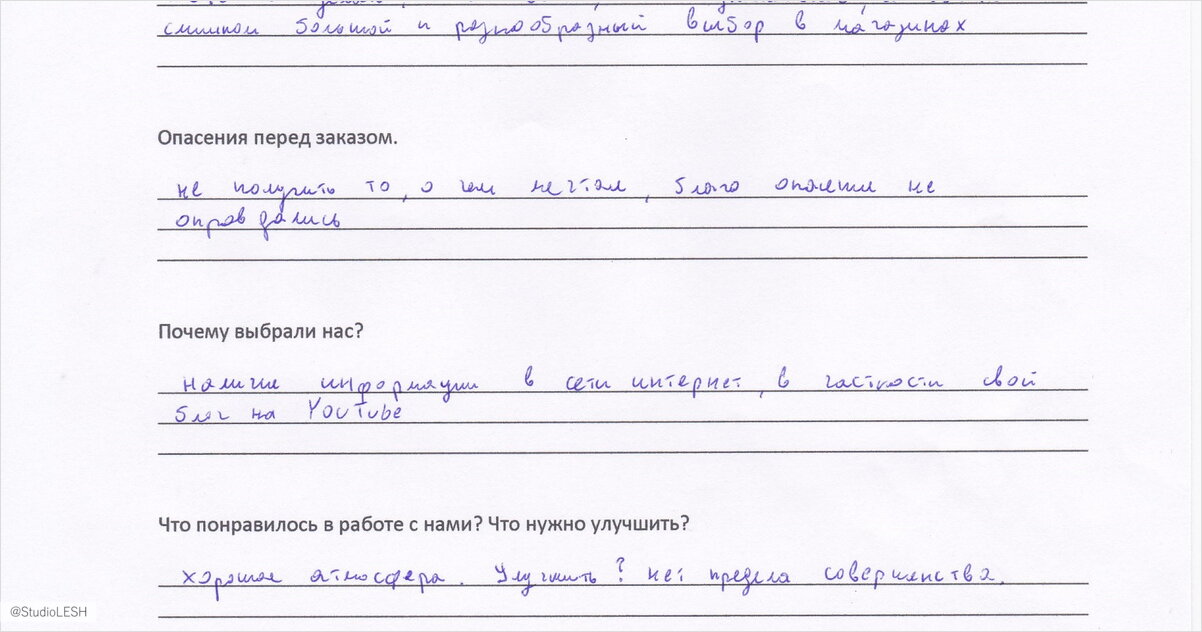 слишком большой и разнообразный выбор в магазинах
Опасения перед заказом.
не получить то, о чем мечтал, благо опасения не
оправдались
Почему выбрали нас?
наличие информации в сети интернет, в частности свой
блог на YouTube
Что понравилось в работе с нами? Что нужно улучшить?
хорошая атмосфера. Улучшить? нет предела совершенства.
@StudioLESH